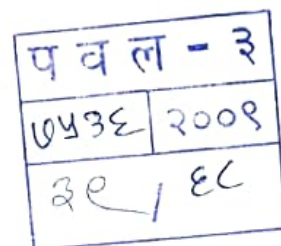 प व ल - ३
७५३६ २००९
३९ / ६८